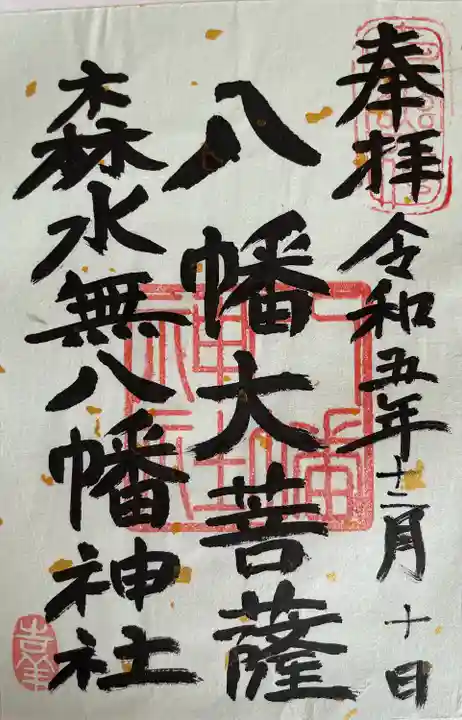 奉拝 令和五年十二月十日
八幡大菩薩
森水無八幡神社